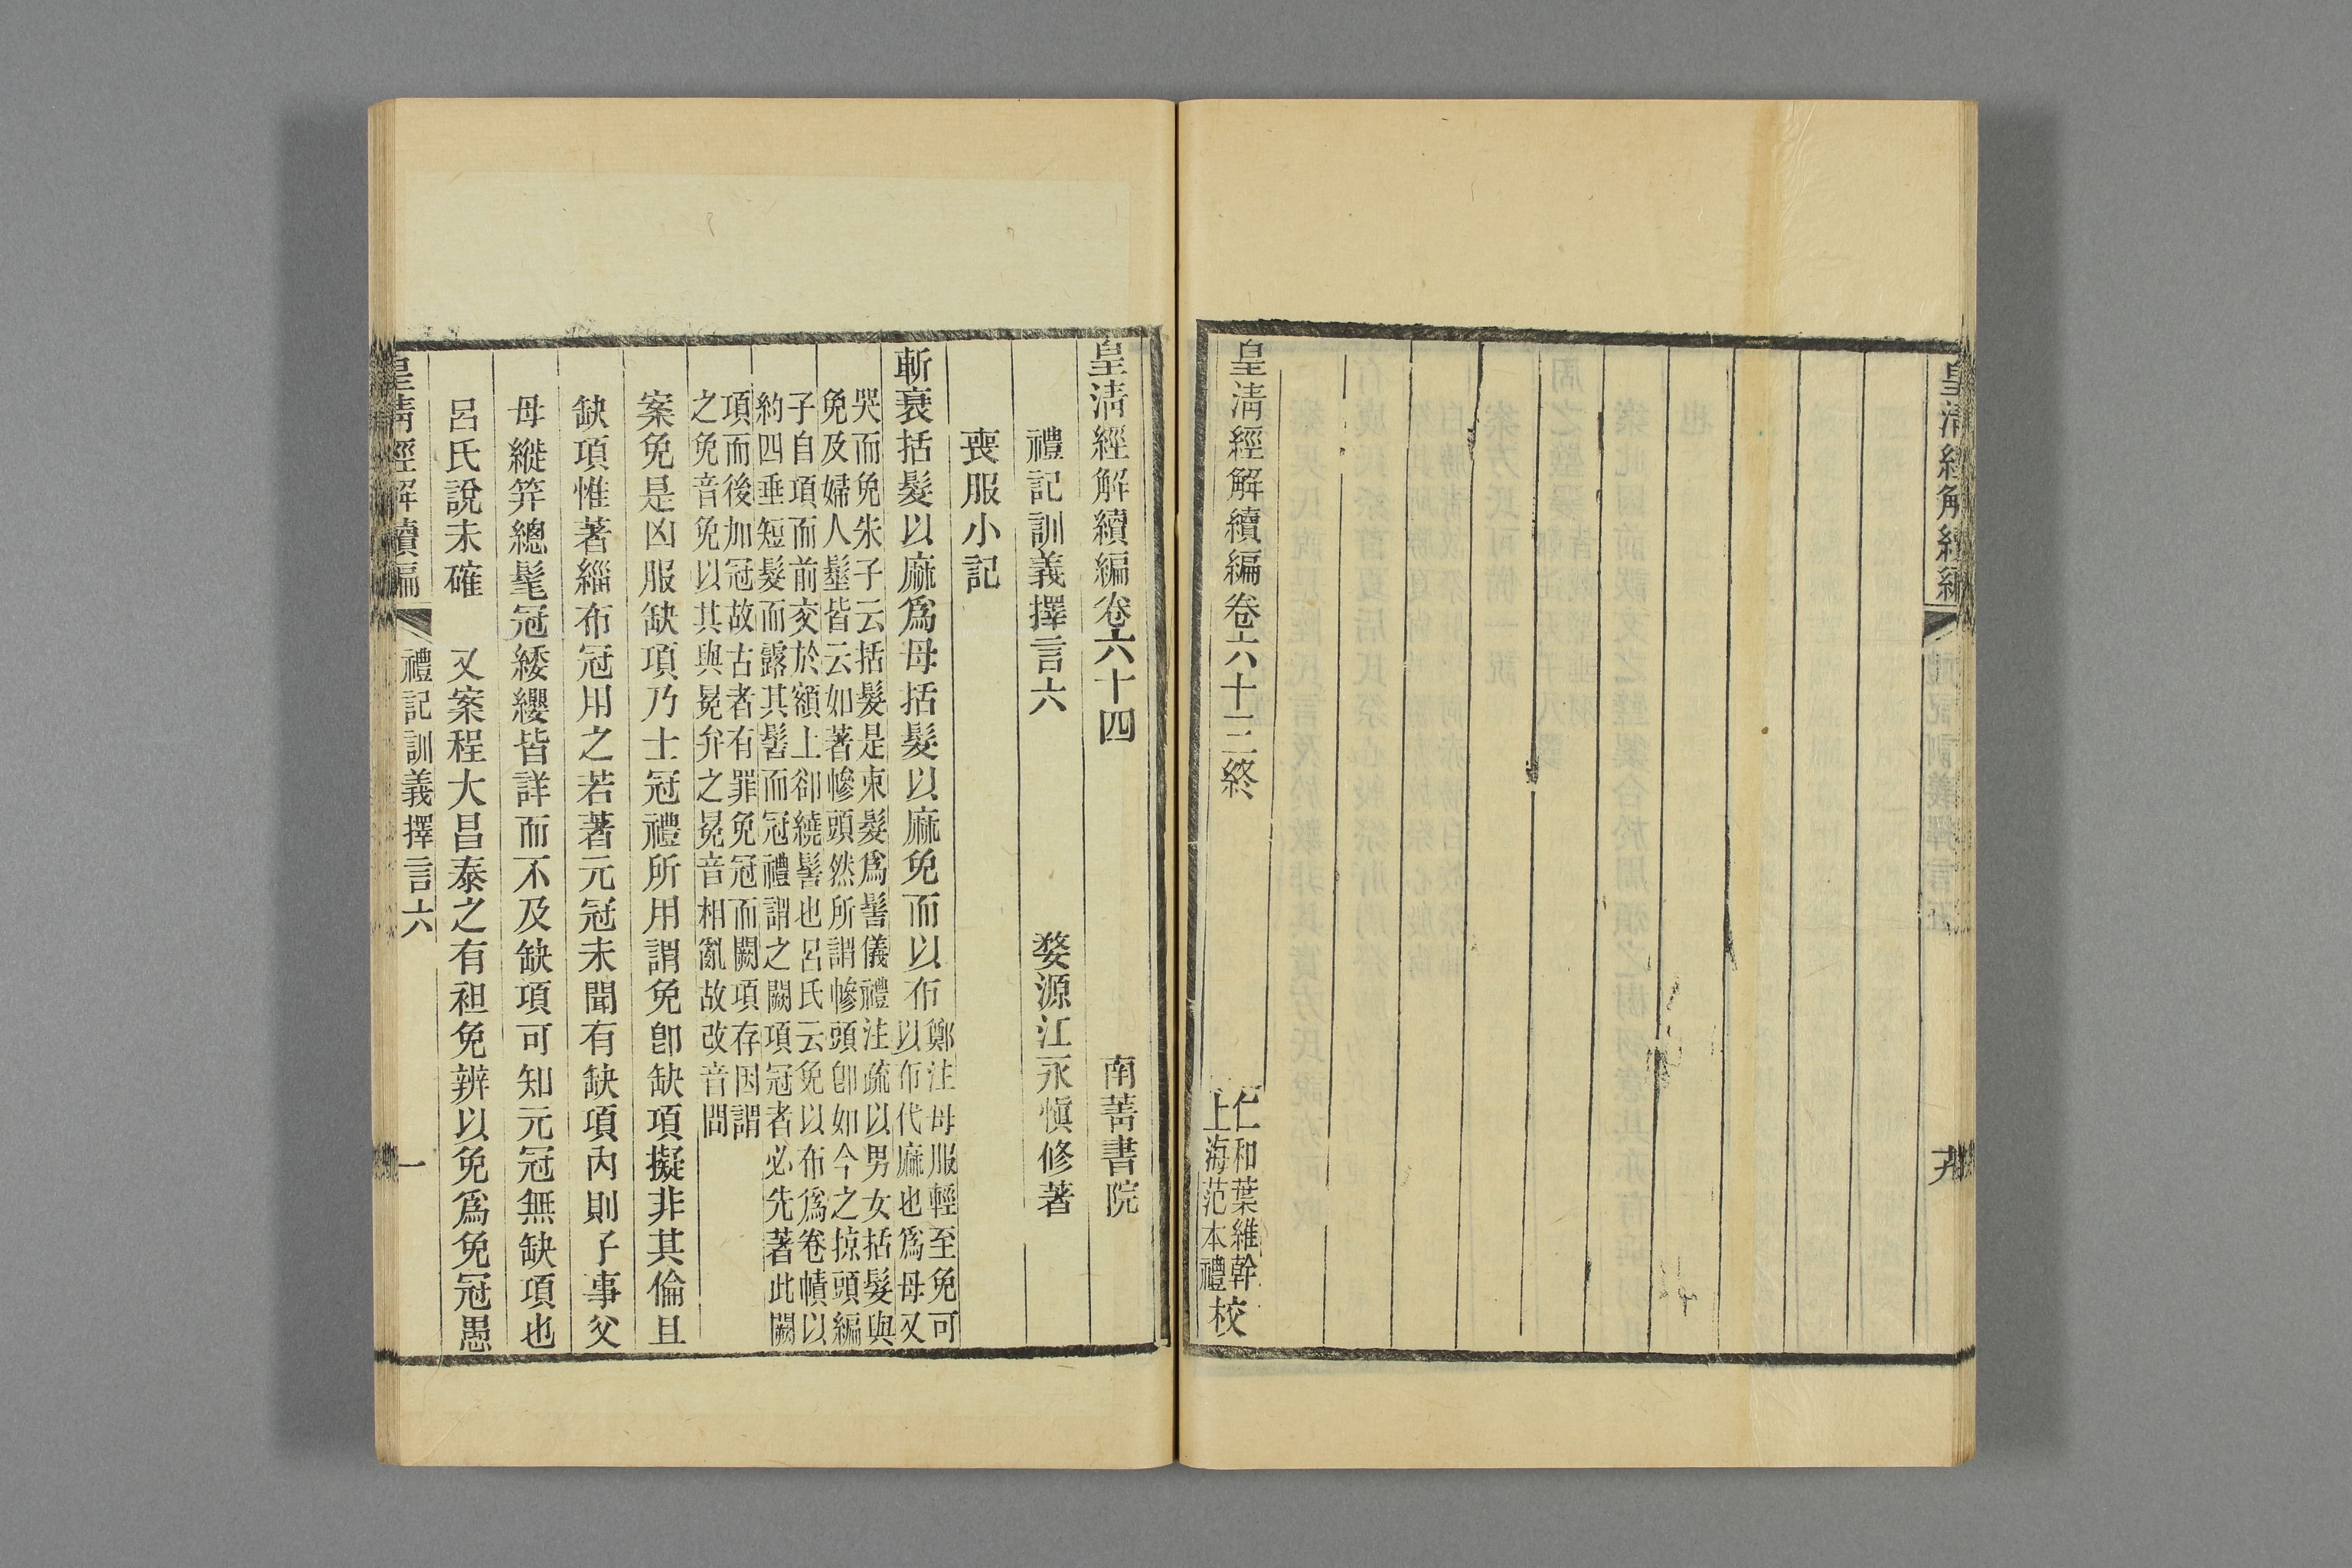 皇清經解續編
皇清經解續編卷六十三終
仁和葉維幹
上海范本禮校
皇清經解續編卷六十四
南菁書院
禮記訓義擇言六
婺源江永慎修著
喪服小記
斬衰括髮以麻爲母括髮以麻免而以布
鄭注母服輕至免可
以布代麻也爲母又
哭而免朱子云括髮是束髮爲髻儀禮注疏以男女括髮與
免及婦人髽皆云如著幓頭然所謂幓頭卽如今之掠頭編
子自項而前交於額上卻繞髻也呂氏云免以布爲卷幘以
約四垂短髮而露其髻而冠禮謂之闕項冠者必先著此闕
項而後加冠故古者有罪免冠而闕項存因謂
之免音免以其與冕弁之冕音相亂故改音問
案免是凶服缺項乃士冠禮所用謂免卽缺項擬非其倫且
缺項惟著緇布冠用之若著元冠未聞有缺項內則子事父
母縱笄總髦冠緌纓皆詳而不及缺項可知元冠無缺項也
呂氏說未確　又案程大昌泰之有袒免辨以免爲免冠愚
皇清經解續編
禮記訓義擇言六
一